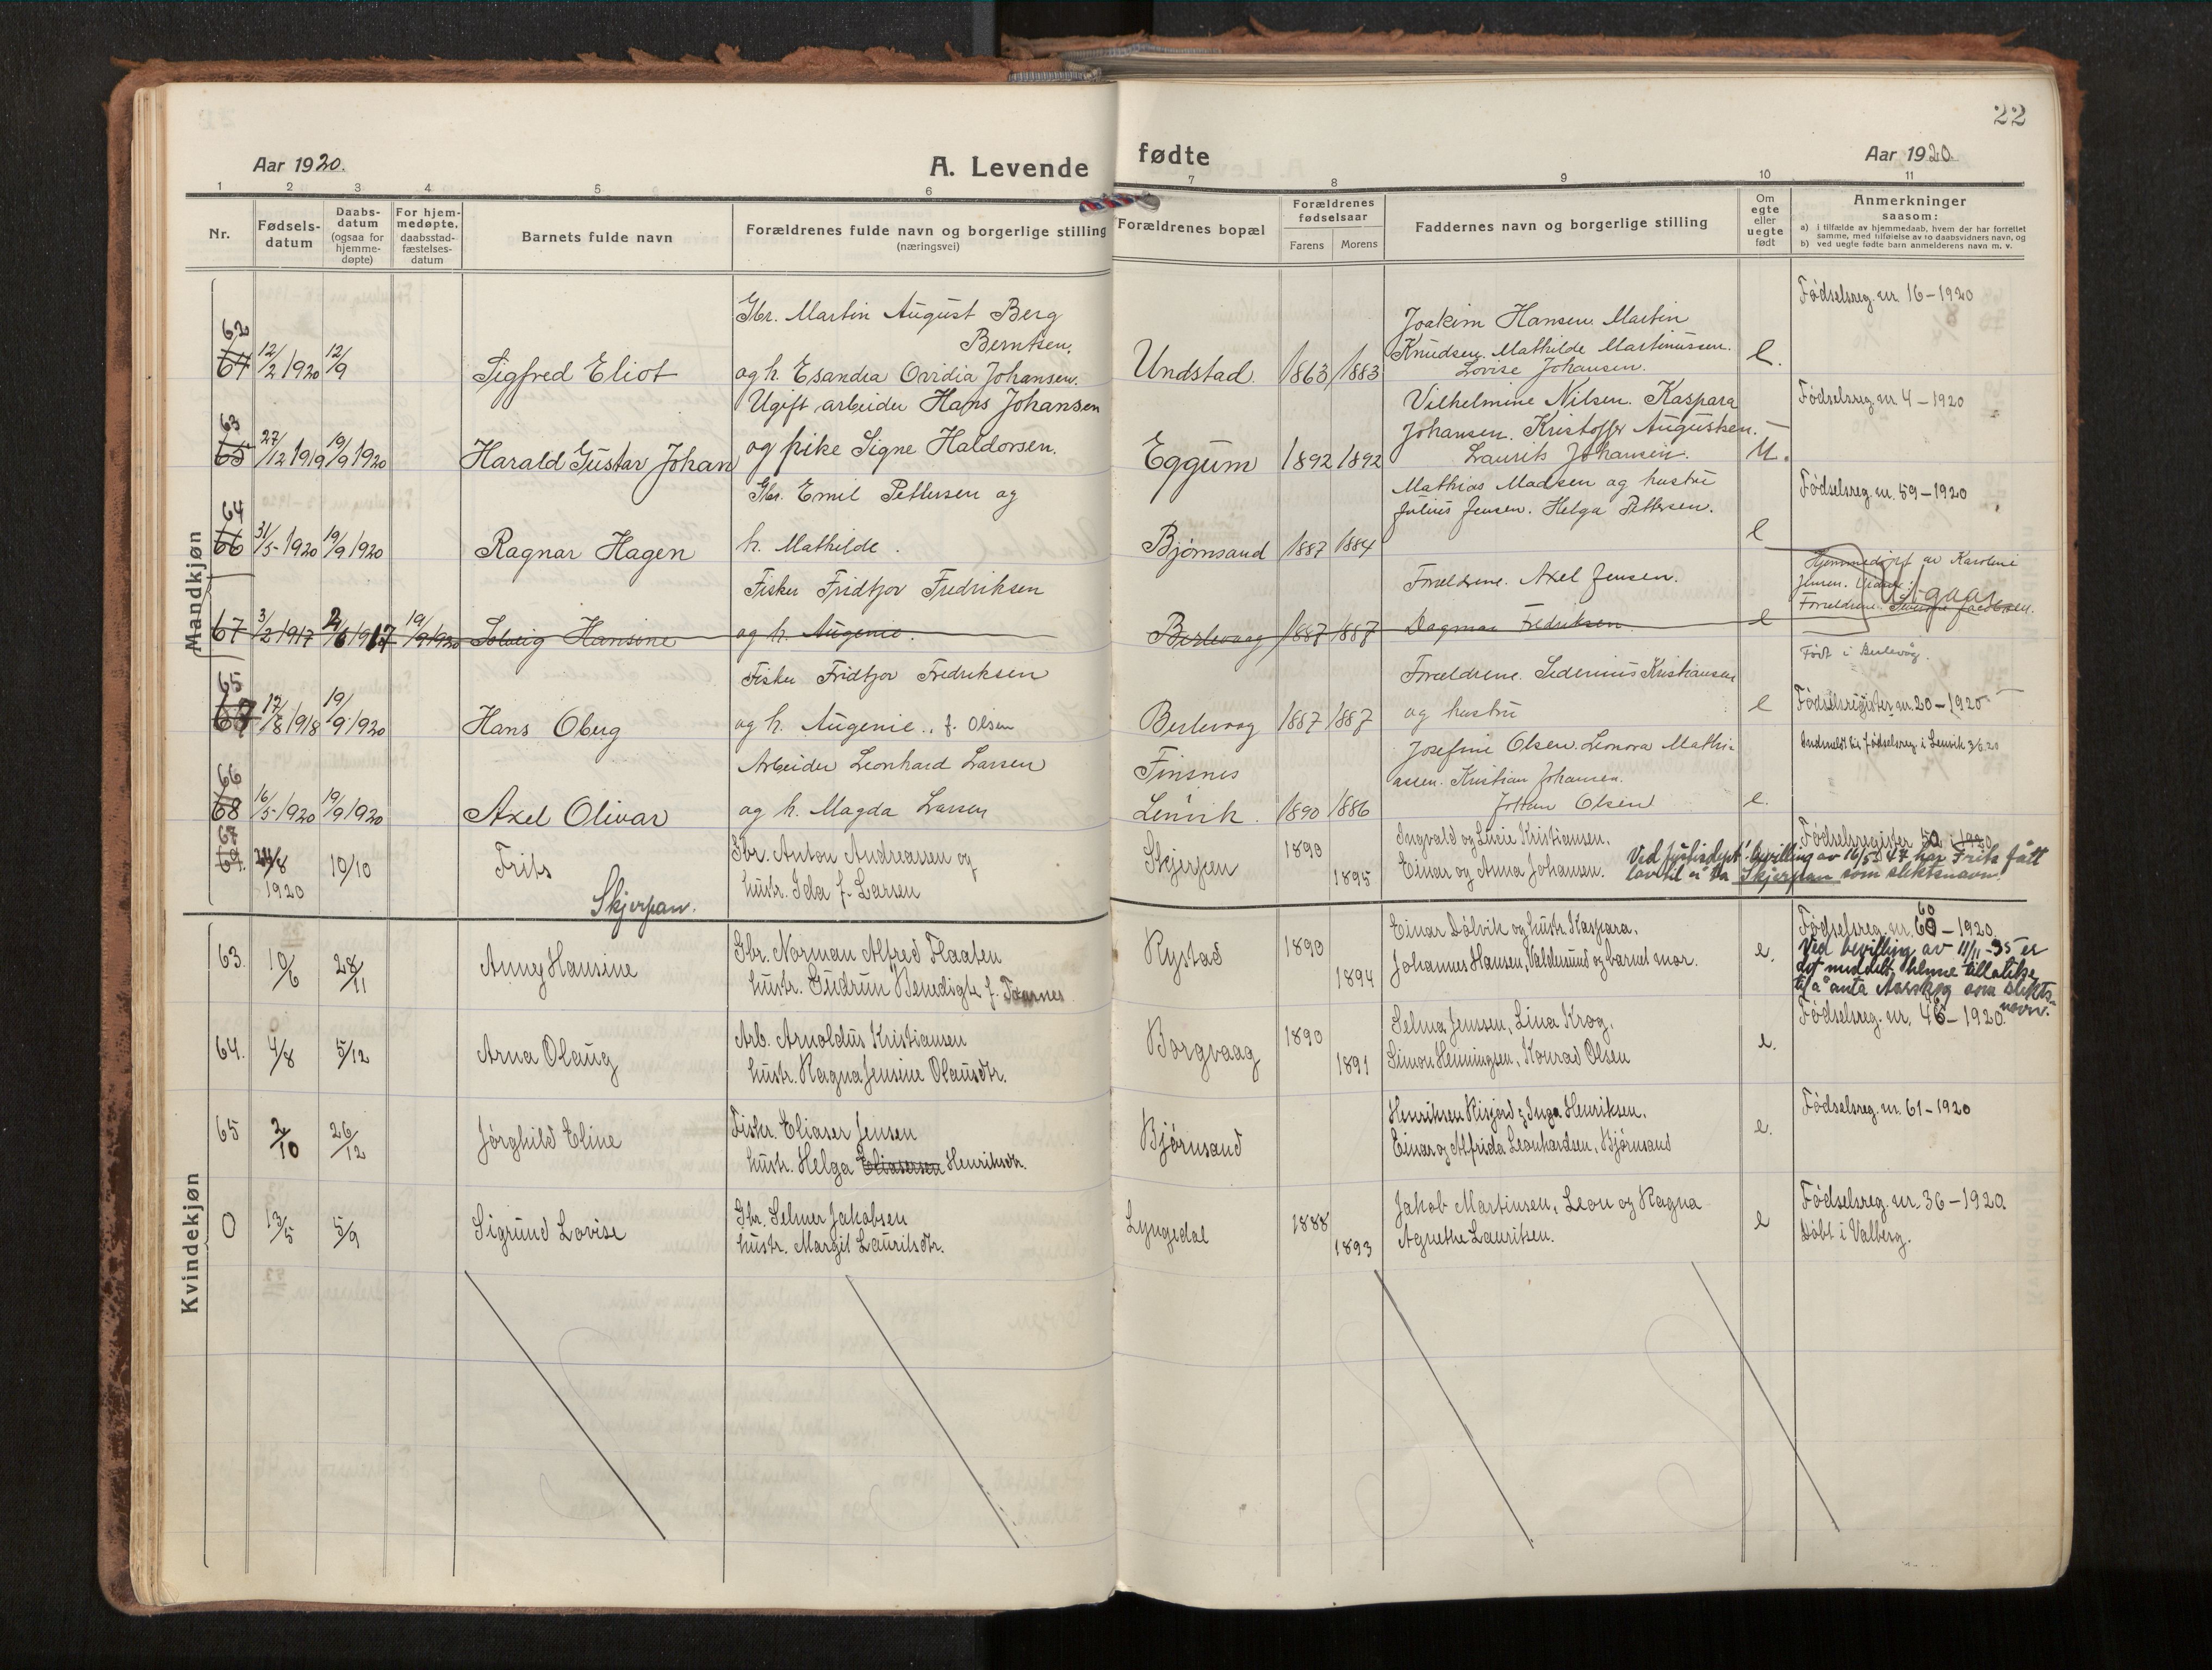 22
Aar 1920.
A. Levende fødte
Aar 1920.
1 2 3 4 5 6 7 8 9 10 11
Nr.
Fødsels-
datum
Daabs-
datum
(ogsaa for
hjemme-
døpte)
For hjem-
medøpte,
daabsstad-
fæstelses-
datum
Barnets fulde navn
Forældrenes fulde navn og borgerlige stilling
(næringsvei)
Forældrenes bopæl
Forældrenes
fødselsaar
Farens Morens
Faddernes navn og borgerlige stilling
Om
egte
eller
uegte
født
Anmerkninger
saasom:
a) i tilfælde av hjemmedaab, hvem der har forrettet
samme, med tilføielse av to daabsvidners navn, og
b) ved uegte fødte barn anmelderens navn m. v.
Mandkjøn
62
64
12/2 1920
12/9
Sigfred Eliot
Gbr. Martin August Berg
Berntsen.
og h. Esandia Ovidia Johansen.
Undstad.
1863 1883
Joakim Hansen. Martin
Knudsen. Mathilde Martinussen.
Lovise Johansen.
e.
Fødselsreg. nr. 16-1920
63
65
27/12 1919
19/9 1920
Harald Gustav Johan
Ugift arbeider Hans Johansen
og pike Signe Haldorsen.
Eggum
1892 1892
Vilhelmine Nilsen. Kaspara
Johansen. Kristoffer Augustsen.
Laurits Johansen.
U.
Fødselsreg. nr. 4-1920
64
66
31/5-1920
19/9 1920
Ragnar Hagen
Gbr. Emil Pettersen og
h. Mathilde.
Bjørnsand
1887 1884
Mathias Madsen og hustru
Julius Jensen. Helga Pettersen.
e
Fødselsreg. nr. 59-1920
67
3/2 1917
2/6 1917
19/9 1920
Solveig Hansine
Fisker Fridtjov Fredriksen
og h. Augenie.
Berlevaag
1887 1887
Forældrene. Axel Jensen.
Dagmar Fredriksen
e
Hjemmedøpt av Karoline
Jensen.
Forældrene. Jacobsen.
Utgaar
Født i Berlevåg.
65
67
17/8 1918
19/9 1920
Hans Oberg
Fisker Fridtjov Fredriksen
og h. Augenie.. f. Olsen
Berlevaag
1887 1887
Forældrene. Sedenius Kristiansen
og hustru
e
Fødselsregister nr. 20-1920
66
68
16/5-1920
19/9 1920
Axel Olivar
Arbeider Leonhard Larsen
og h. Magda Larsen
Finsnes
Lenvik.
1890 1886
Josefine Olsen. Leonora Mathi-
assen. Kristian Johansen.
Johan Olsen
e.
Indmeldt til fødselsreg. i Lenvik 3/6 20
67
69.
24/8
1920
10/10
Frits
Skjerpan.
Gbr. Anton Andreassen og
hustr. Ida f. Larsen
Skjerpen
1890
1895
Ingvald og Lucie Kristiansen.
Einar og Anna Johansen.
Fødselsregister 50-1920
Ved justisdept. bevilling av 16/5 47 har Frits fått
lov til å ta Skjerpan som slektsnavn.
Kvindekjøn
63.
10/6
28/11
Anny Hansine
Gbr. Norman Alfred Flaaten
hustr. Gudrun Benedigte f. Taarnes
Rystad
1890
1894
Einar Dølvik og hustr. Kaspara.
Johannes Hansen, Valdersund og barnets mor.
e.
60
Fødselsreg. nr. 60-1920.
Ved bevilling av 11/11-35 er
det meddelt henne tillatelse
til å anta Aarskog som slekts-
navn.
64.
4/8
5/12
Arna Olaug
Arb. Arnoldus Kristiansen
hustr. Ragna Jensine Olausdtr.
Borgvaag
1890
1891
Selma Jenssen, Lina Krog,
Simon Henningsen, Konrad Olsen
e.
Fødselsreg. nr. 46-1920.
65
2/10
26/12
Jørghild Eline
Fisker. Eliaser Jensen
hustr. Helga Eliasersen Henriksdtr.
Bjørnsand
Henriksen Risjord, Inga Henriksen.
Einar og Alfrida Leonhardsen, Bjørnsand
e.
Fødselsreg. nr. 61-1920
0
13/5
5/9
Sigrund Lovise
Gbr. Selmer Jakobsen
hustr. Margit Lauritsdtr.
Lyngedal
1888
1893
Jakob Martinsen, Leon og Ragna
Agnethe Lauritsen.
e
Fødselsreg. nr. 36-1920.
Døbt i Valberg.